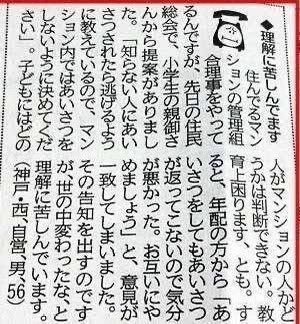 ◆理解に苦しんでます
住んでるマン
ションの管理組
合理事をやって
るんですが、先日の住民
総会で、小学生の親御さ
んから提案がありまし
た。「知らない人にあい
さつされたら逃げるよう
に教えているので、マン
ション内ではあいさつを
しないように決めてくだ
さい」。子どもにはどの
人がマンションの人かど
うかは判断できない。教
育上困ります、とも。す
ると、年配の方から「あ
いさつをしてもあいさつ
が返ってこないので気分
が悪かった。お互いにや
めましょう」と、意見が
一致してしまいました。
その告知を出すのです
が、世の中変わったな、と
理解に苦しんでいます。
(神戸・西、自営、男、56)